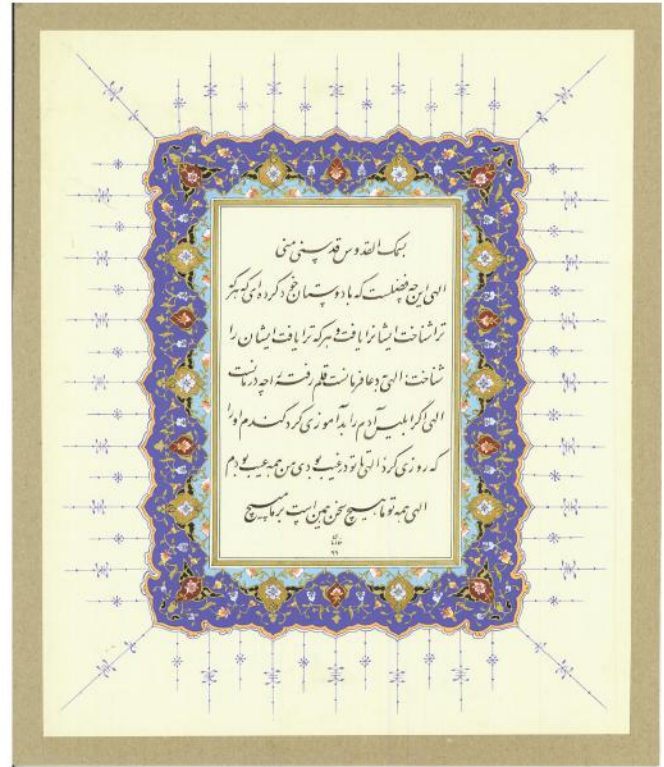 بسمک القدوس قدسنی منی
الهی این چه فضلست که با دوستان خود کرده‌ای که هرکه
ترا شناخت ایشانرا یافت و هرکه ترا یافت ایشان را
شناخت الهی دعا فرمانست قلم رفته را چه درمانست
الهی اگر ابلیس آدم را بدآموزی کرد گندم او را
که روزی کرد الهی تا تو در غیب بودی من همه عیب بودم
الهی همه تو ما هیچ سخن همین است بر ما مپیچ